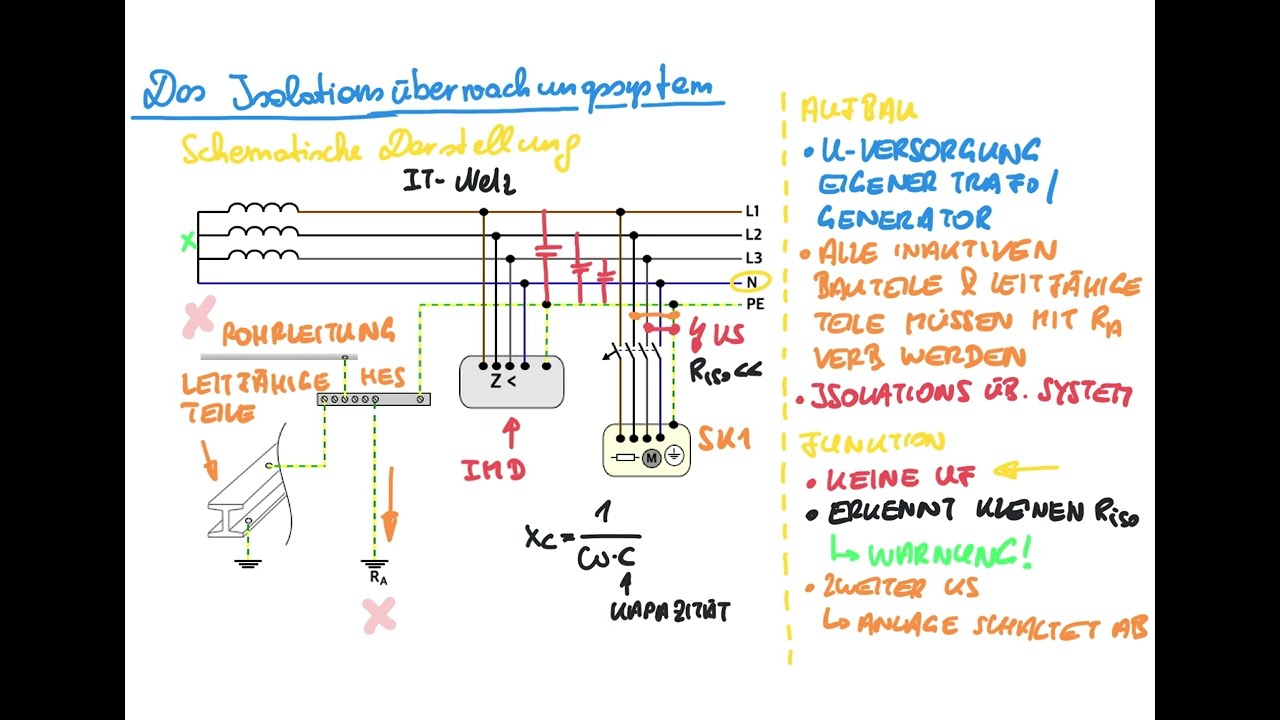 Das Isolationsüberwachungssystem
Schematische Darstellung
IT-Netz
L1
L2
L3
N
PE
X
ROHRLEITUNG
LEITFÄHIGE
TEILE
HES
Z <
IMD
KS
RISO <<
M
SK1
RA
XC = 1
ω·C
KAPAZITÄT
AUFBAU
• U-VERSORGUNG
EIGENER TRAFO/
GENERATOR
• ALLE INAKTIVEN
BAUTEILE & LEITFÄHIGE
TEILE MÜSSEN MIT RA
VERB WERDEN
• ISOLATIONS ÜB. SYSTEM
FUNKTION
• KEINE UF
• ERKENNT KLEINEN RISO
↳ WARNUNG!
• ZWEITER KS
↳ ANLAGE SCHALTET AB